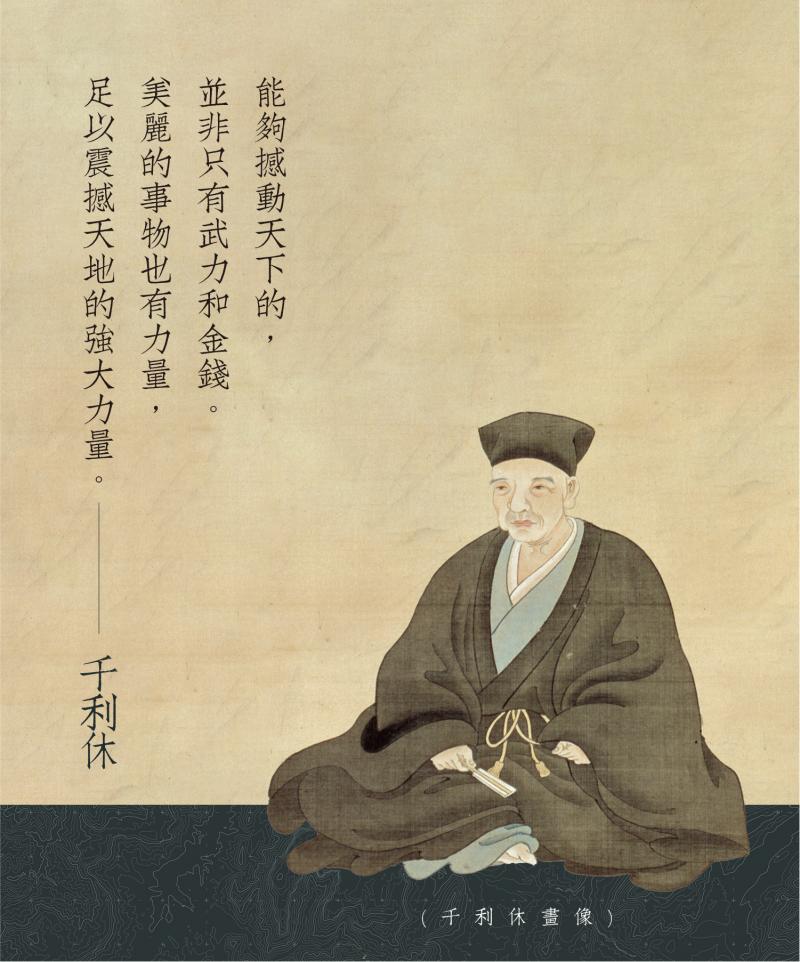 能夠撼動天下的，
並非只有武力和金錢。
美麗的事物也有力量，
足以震撼天地的強大力量。——千利休
（千利休畫像）